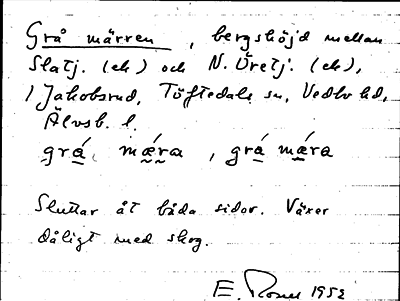 Grå märren, bergshöjd mellan
Slätj. (ek) och N. Üretj. (ek),
i Jakobsrud, Töftedals sn, Vedbo hd,
Älvsb. l.
grá mǽra, grá mǽra
Sluttar åt båda sidor. Växer
dåligt med skog.
E. 1952